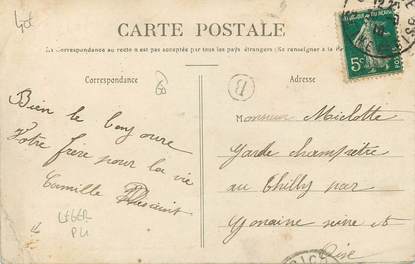 CARTE POSTALE
La Correspondance au recto n'est pas acceptée par tous les pays étrangers (Se renseigner à la
Correspondance
Adresse
5c
B
Bien le bonjoure
Votre frère pour la vie
Camille
Monsieur Miclotte
garde champêtre
au Chilly par
seine et
Oise
LEGER
PLI